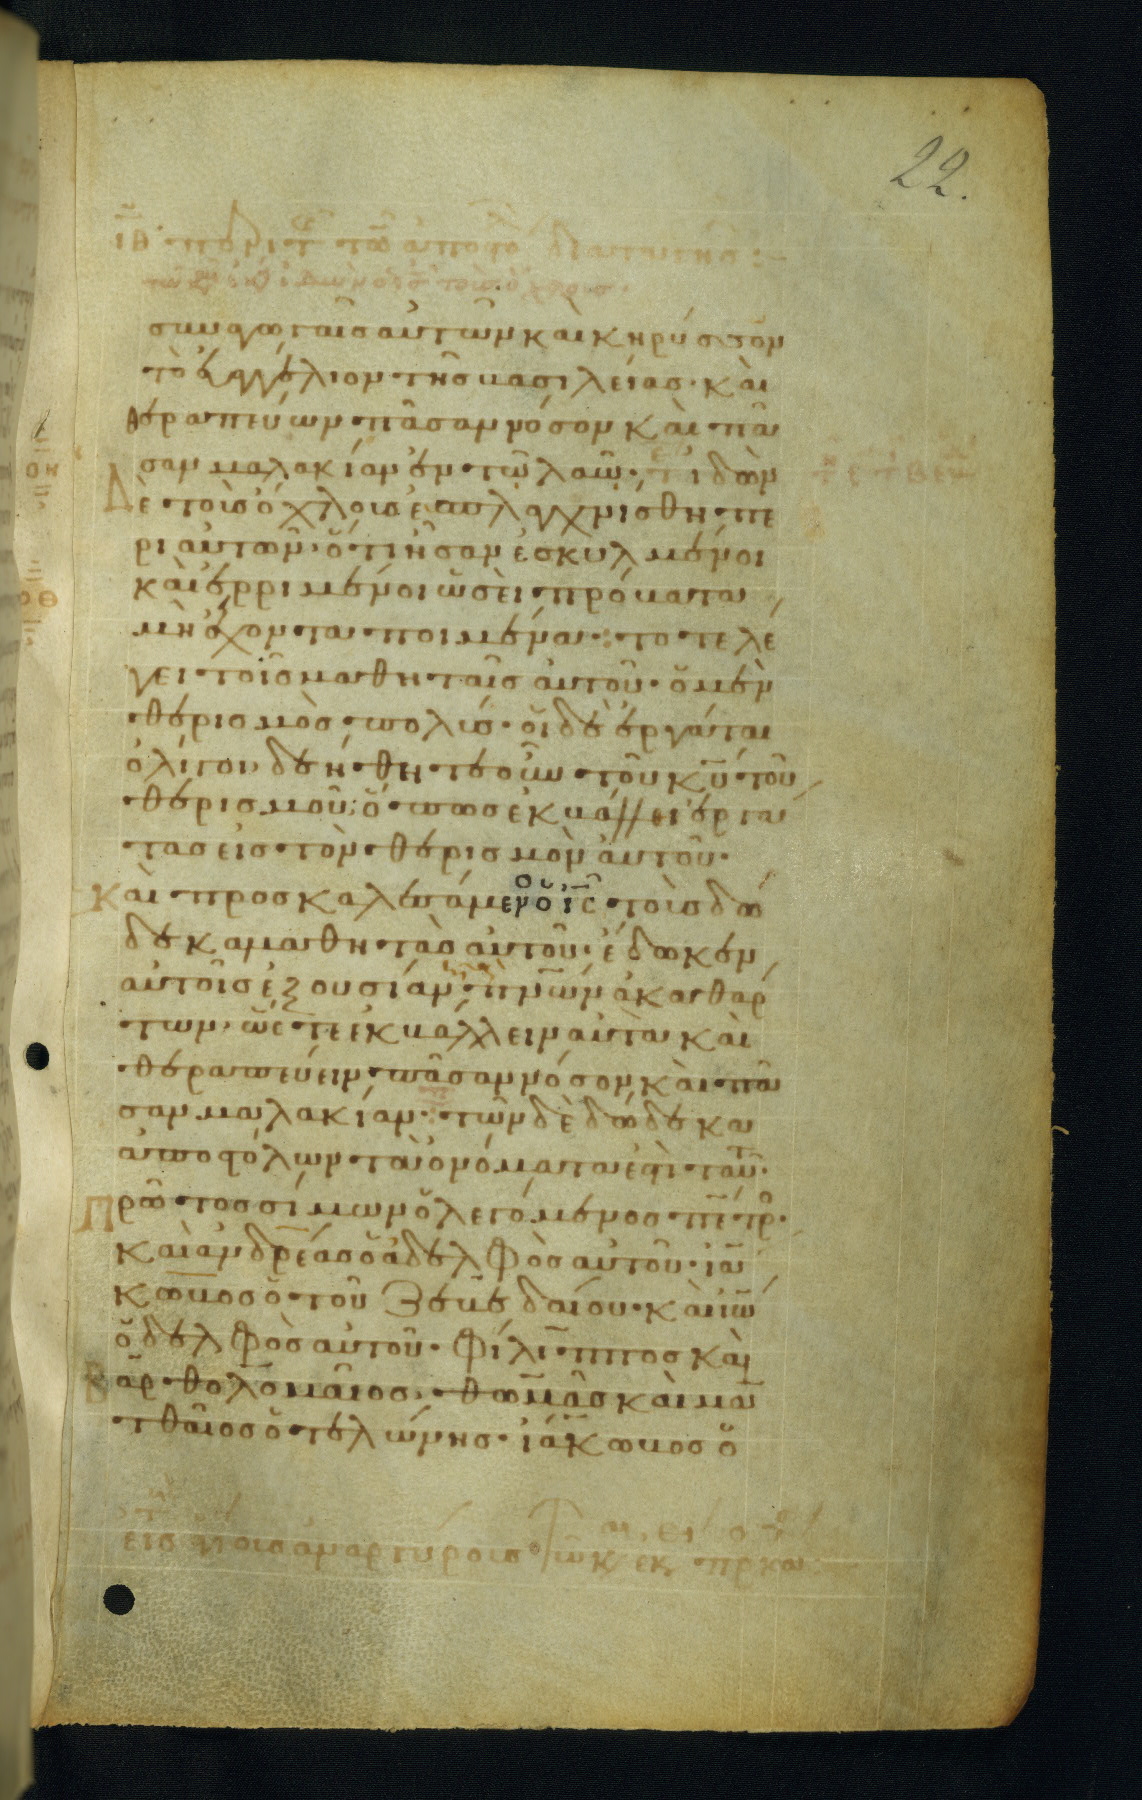 22.
συναγωγαῖς αὐτῶν καὶ κηρύσσων
τὸ εὐαγγέλιον τῆς βασιλείας· καὶ
θεραπεύων πᾶσαν νόσον καὶ πᾶ
σαν μαλακίαν ἐν τῶ λαῶ· ἰδὼν
Δὲ τοὺς ὄχλους ἐσπλαγχνίσθη πε
ρὶ αὐτῶν· ὅτι ἦσαν ἐσκυλμένοι
καὶ ἐρριμένοι ὡσεὶ πρόβατα
μὴ ἔχοντα ποιμένα· τότε λέ
γει τοῖς μαθηταῖς αὐτοῦ· ὁ μὲν
θερισμὸς πολύς· οἱ δὲ ἐργάται
ὀλίγοι δεήθητε οὖν τοῦ κ̅υ̅ τοῦ
θερισμοῦ· ὅπως ἐκβά// ει ἐργά
τας εἰς τὸν θερισμὸν αὐτοῦ·
Καὶ προσκαλεσάμενο ὁ ι̅ς̅ τοὺς δώ
δεκα μαθητὰς αὐτοῦ· ἔδωκεν
αὐτοῖς ἐξουσίαν π̅ν̅ων ἀκαθάρ
των· ὥστε ἐκβάλλειν αὐτὰ καὶ
θεραπεύειν πᾶσαν νόσον καὶ πᾶ
σαν μαλακίαν· τῶν δὲ δώδεκα
ἀποστόλων τὰ ὀνόματα ἐστὶ ταῦτ·
Πρῶτος σίμων ὁ λεγόμενος πέτρ·
καὶ ἀνδρέας ὁ ἀδελφὸς αὐτοῦ· ἰά
κωβος ὁ τοῦ ζεβεδαίου· καὶ ἰω
ὁ δελφὸς αὐτοῦ· φίλιππος καὶ
Βαρθολομαῖος· θωμᾶς καὶ μα
τθαῖος ὁ τελώνης· ἰάκωβος ὁ